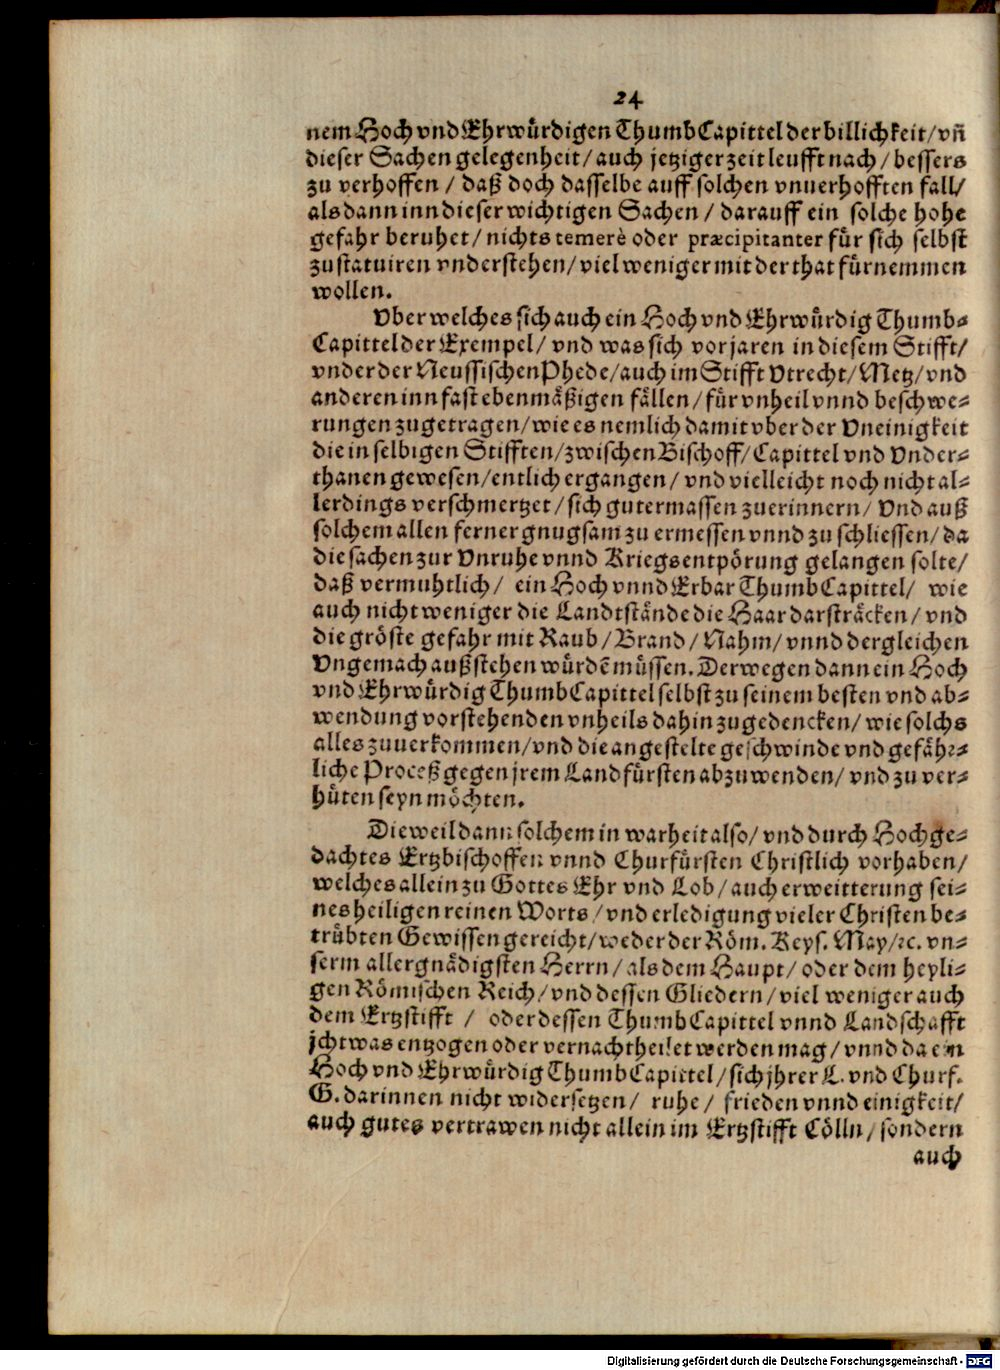 24
nem Hoch vnd Ehrwürdigen ThumbCapittel der billichkeit/ vñ
dieser Sachen gelegenheit/ auch jetziger zeit leufft nach/ bessers
zu verhoffen / daß doch dasselbe auff solchen vnuerhofften fall/
als dann inn dieser wichtigen Sachen / darauff ein solche hohe
gefahr beruhet/ nichts temerè oder præcipitanter für sich selbst
zu statuiren vnderstehen/ viel weniger mit der that fürnemmen
wollen.
Vber welches sich auch ein Hoch vnd Ehrwürdig Thumb-
Capittel der Exempel/ vnd was sich vor jaren in diesem Stifft/
vnder der Neussischen Phede/ auch im Stifft Vtrecht/ Metz/ vnd
anderen inn fast ebenmäßigen fällen/ für vnheil vnnd beschwe-
rungen zugetragen/ wie es nemlich damit vber der Vneinigkeit
die in selbigen Stifften/ zwischen Bischoff/ Capittel vnd Vnder-
thanen gewesen/ entlich ergangen/ vnd vielleicht noch nicht al-
lerdings verschmertzet/ sich gutermassen zuerinnern/ Vnd auß
solchem allen ferner gnugsam zu ermessen vnnd zu schliessen/ da
die sachen zur Vnruhe vnnd Kriegsentpörung gelangen solte/
daß vermuhtlich/ ein Hoch vnnd Erbar ThumbCapittel/ wie
auch nicht weniger die Landtstände die Haar darsträcken/ vnd
die gröste gefahr mit Raub/ Brand/ Nahm/ vnnd dergleichen
Vngemach außstehen würdẽ müssen. Derwegen dann ein Hoch
vnd Ehrwürdig ThumbCapittel selbst zu seinem besten vnd ab-
wendung vorstehenden vnheils dahin zugedencken/ wie solchs
alles zuuerkommen/ vnd die angestelte geschwinde vnd gefähr-
liche Proceß gegen jrem Landfürsten abzuwenden/ vnd zu ver-
hüten seyn möchten.
Dieweil dann solchem in warheit also/ vnd durch Hochge-
dachtes Ertzbischoffen vnnd Churfürsten Christlich vorhaben/
welches allein zu Gottes Ehr vnd Lob/ auch erweitterung sei-
nes heiligen reinen Worts/ vnd erledigung vieler Christen be-
trübten Gewissen gereicht/ weder der Röm. Keys. May/ ꝛc. vn-
serm allergnädigsten Herrn/ als dem Haupt/ oder dem heyli-
gen Römischen Reich/ vnd dessen Gliedern/ viel weniger auch
dem Ertzstifft / oder dessen ThumbCapittel vnnd Landschafft
jchtwas entzogen oder vernachtheilet werden mag/ vnnd da ein
Hoch vnd Ehrwürdig ThumbCapittel/ sich jhrer L. vnd Churf.
G. darinnen nicht widersetzen/ ruhe/ frieden vnnd einigkeit/
auch gutes vertrawen nicht allein im Ertzstifft Cölln/ sondern
auch
Digitalisierung gefördert durch die Deutsche Forschungsgemeinschaft - DFG